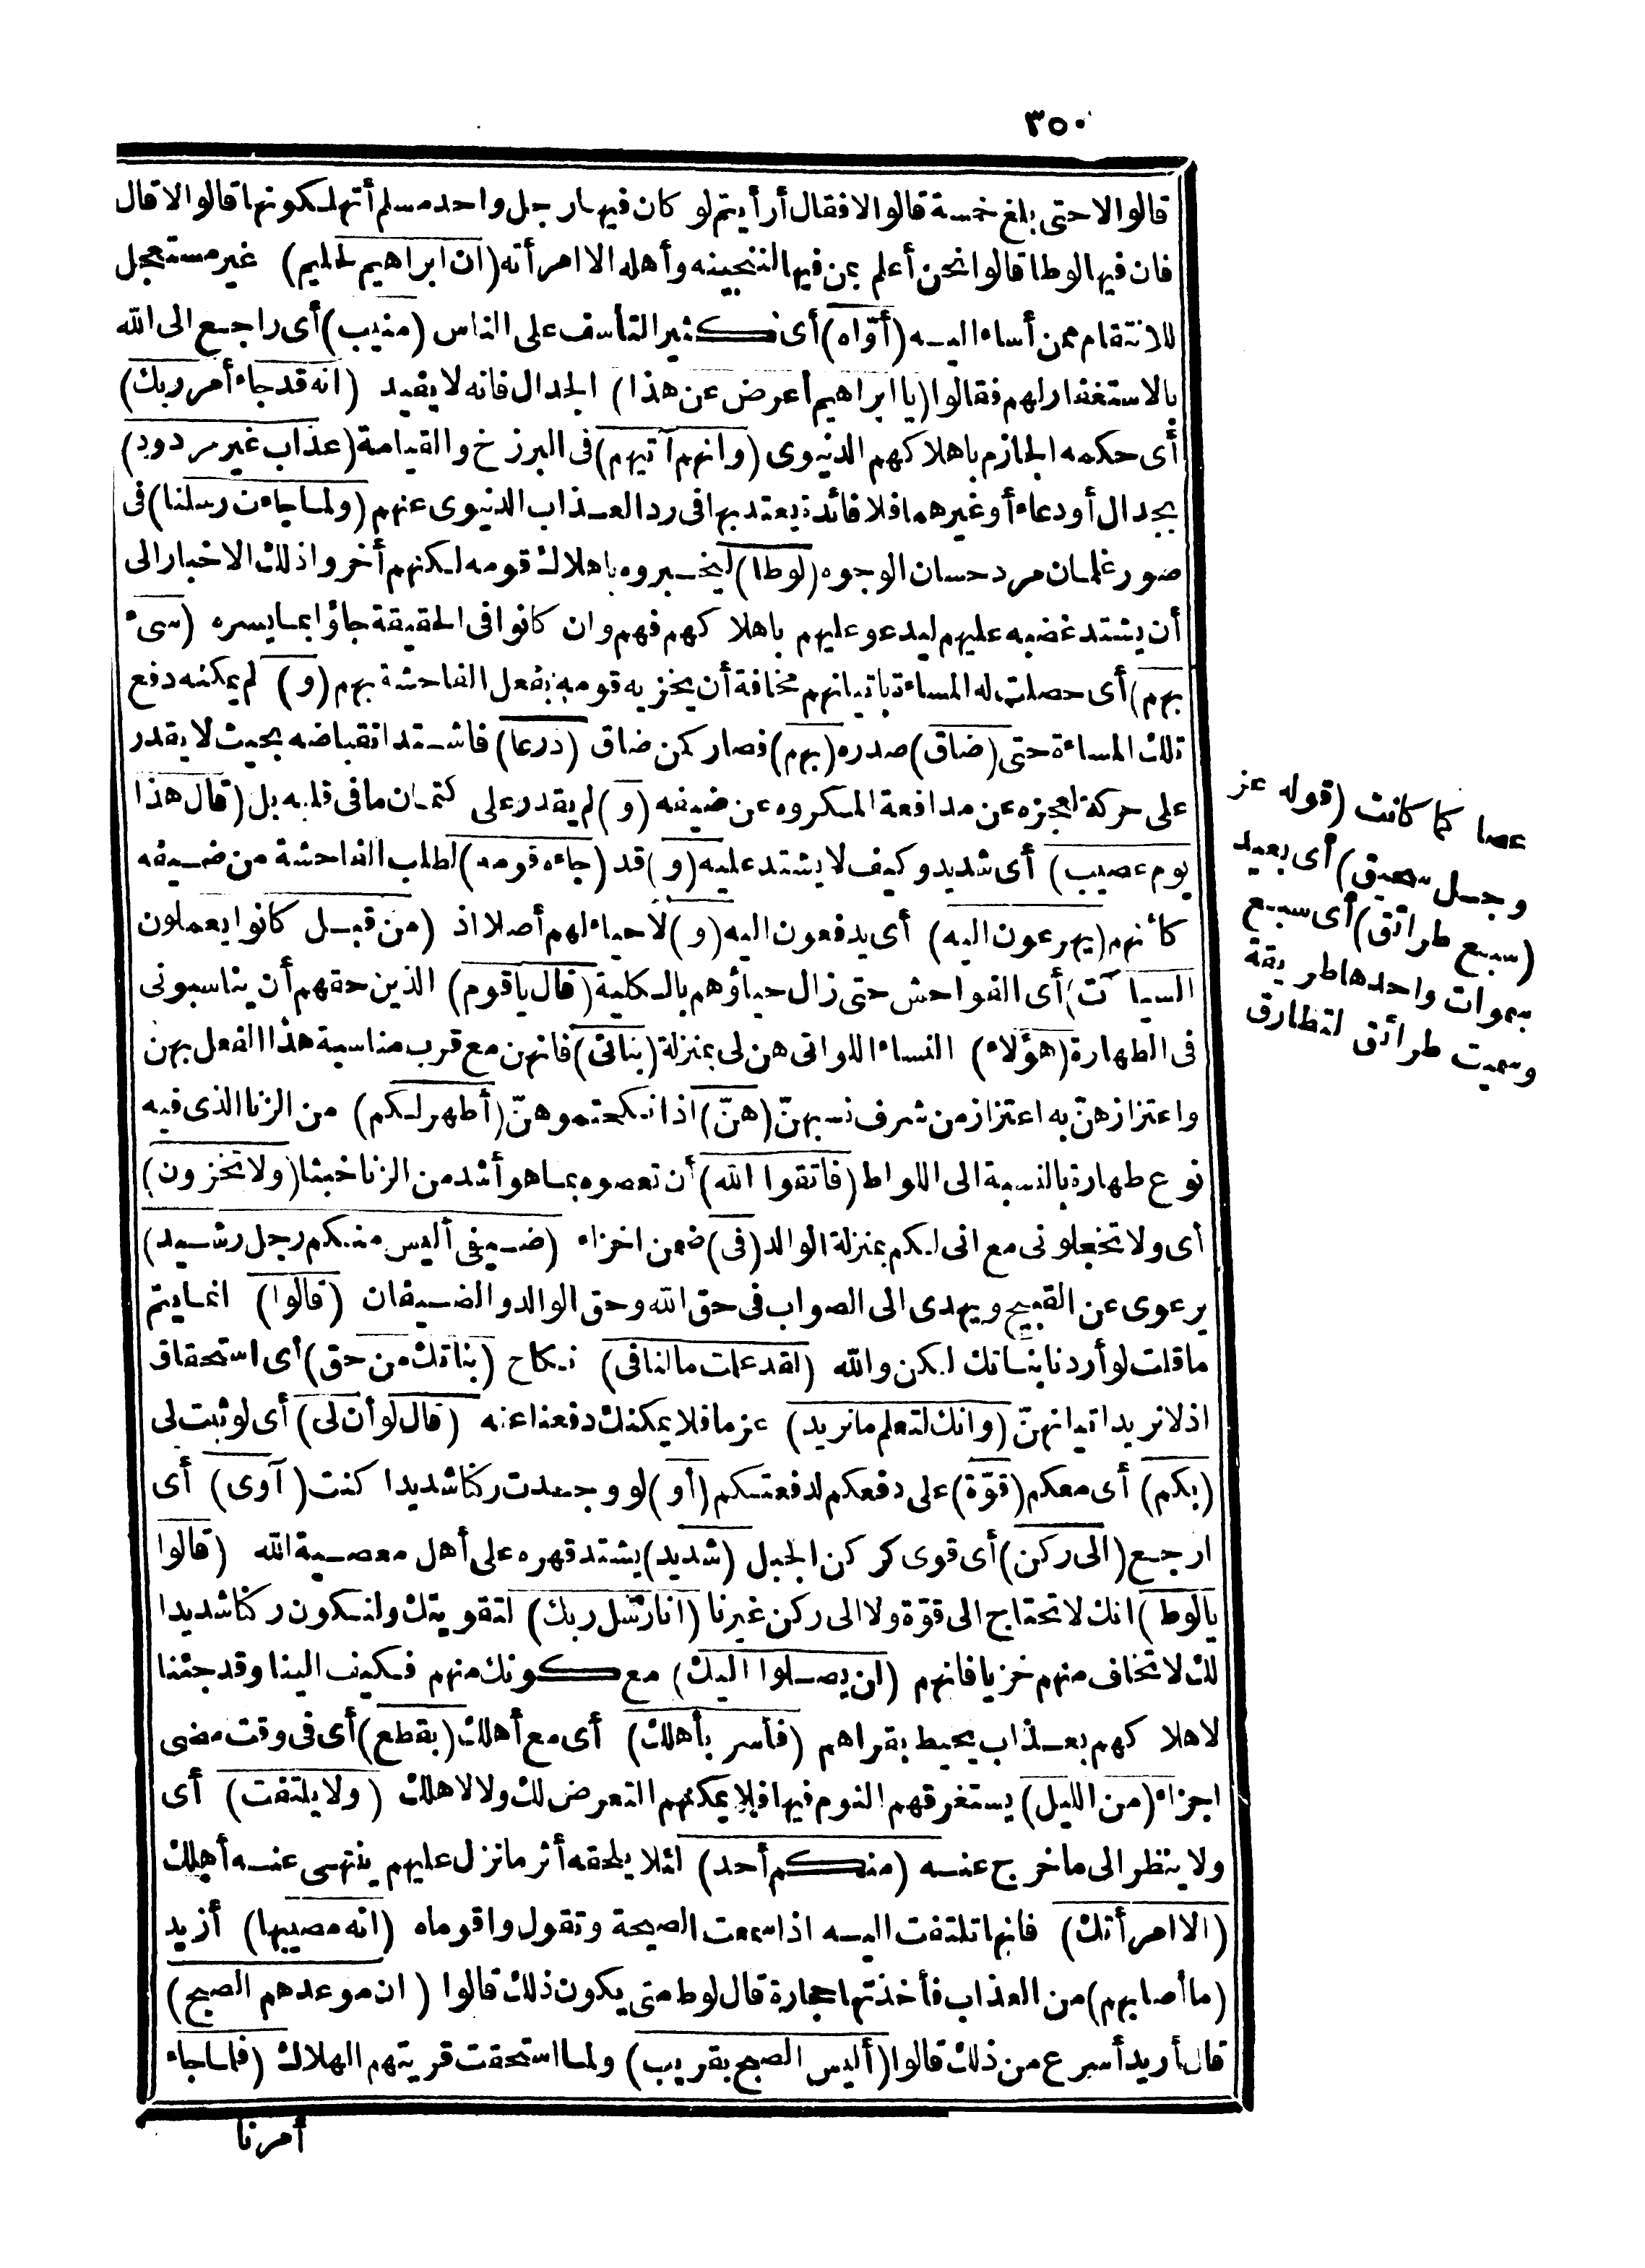 ٣٥٠
قالوا لا حتى بلغ خمسة قالوا لا فقال أرأيتم لو كان فيها رجل واحد مسلم أتهلكونها قالوا لا قال
فان فيها لوطا قالوا نحن أعلم بمن فيها لننجينه وأهله الا امرأته (ان ابراهيم لحليم) غير مستعجل
للانتقام ممن أساء اليه (أوّاه) أى كثير التأسف على الناس (منيب) أى راجع الى الله
بالاستغفار لهم فقالوا (يا ابراهيم أعرض عن هذا) الجدال فانه لا يفيد (انه قد جاء أمر ربك)
أى حكمه الجازم باهلاكهم الدنيوى (وانهم آتيهم) فى البرزخ والقيامة (عذاب غير مردود)
بجدال أو دعاء أو غيرهما فلا فائدة يعتد بها فى رد العذاب الدنيوى عنهم (ولما جاءت رسلنا) فى
صور غلمان مرد حسان الوجوه (لوطا) ليخبروه باهلاك قومه لكنهم أخروا ذلك الاخبار الى
أن يشتد غضبه عليهم ليدعو عليهم باهلاكهم فهم وان كانوا فى الحقيقة جاؤا بما يسره (سىء
بهم) أى حصلت له المساءة باتيانهم مخافة أن يخزيه قومه بفعل الفاحشة بهم (و) لم يمكنه دفع
تلك المساءة حتى (ضاق) صدره (بهم) فصار كمن ضاق (ذرعا) فاشتد انقباضه بحيث لا يقدر
على حركة لعجزه عن مدافعة المكروه عن ضيفه (و) لم يقدر على كتمان ما فى قلبه بل (قال هذا
يوم عصيب) أى شديد وكيف لا يشتد عليه (و) قد (جاءه قومه) لطلب الفاحشة من ضيفه
كأنهم (يهرعون اليه) أى يدفعون اليه (و) لا حياء لهم أصلا اذ (من قبل كانوا يعملون
السيآت) أى الفواحش حتى زال حياؤهم بالكلية (قال يا قوم) الذين حقهم أن يناسبونى
فى الطهارة (هؤلاء) النساء اللواتى هن لى بمنزلة (بناتى) فانهن مع قرب مناسبة هذا الفعل بهن
واعتزازهنّ به اعتزاز من شرف نسبهنّ (هنّ) اذا نكحتموهنّ (أطهر لكم) من الزنا الذى فيه
نوع طهارة بالنسبة الى اللواط (فاتقوا الله) أن تعصوه بما هو أشد من الزنا خبثا (ولا تخزون)
أى ولا تخجلونى مع انى لكم بمنزلة الوالد (فى) ضمن اخزاء (ضيفى أليس منكم رجل رشيد)
يرعوى عن القبيح ويهدى الى الصواب فى حق الله وحق الوالد والضيفان (قالوا) انما يتم
ما قلت لو أردنا بناتك لكن والله (لقد علمت ما لنا فى) نكاح (بناتك من حق) أى استحقاق
اذ لا نريد اتيانهنّ (وانك لتعلم ما نريد) عزما فلا يمكنك دفعنا عنه (قال لو أن لى) أى لو ثبت لى
(بكم) أى معكم (قوّة) على دفعكم لدفعتكم (أو) لو وجدت ركنا شديدا كنت (آوى) أى
ارجع (الى ركن) أى قوى كركن الجبل (شديد) يشتد قهره على أهل معصية الله (قالوا
يا لوط) انك لا تحتاج الى قوّة ولا الى ركن غيرنا (انا رسل ربك) لتقويتك ولنكون ركنا شديدا
لك لا تخاف منهم خزيا فانهم (لن يصلوا اليك) مع كونك منهم فكيف الينا وقد جئنا
لاهلاكهم بعذاب يحيط بقراهم (فأسر بأهلك) أى مع أهلك (بقطع) أى فى وقت مضى
اجزاء (من الليل) يستغرقهم النوم فيها فلا يمكنهم التعرض لك ولا لاهلك (ولا يلتفت) أى
ولا ينظر الى ما خرج عنه (منكم أحد) لئلا يلحقه أثر ما نزل عليهم ينتهى عنه أهلك
(الا امرأتك) فانها تلتفت اليه اذا سمعت الصيحة وتقول واقوماه (انه مصيبها) أزيد
(ما أصابهم) من العذاب فأخذتها حجارة قال لوط متى يكون ذلك قالوا (ان موعدهم الصبح)
قال أريد أسرع من ذلك قالوا (أليس الصبح بقريب) ولما استحقت قريتهم الهلاك (فلما جاء
أمرنا
عصا كما كانت (قوله عز
وجل سحيق) أى بعيد
(سبع طرائق) أى سبع
سموات واحدها طريقة
وسميت طرائق لتطارق